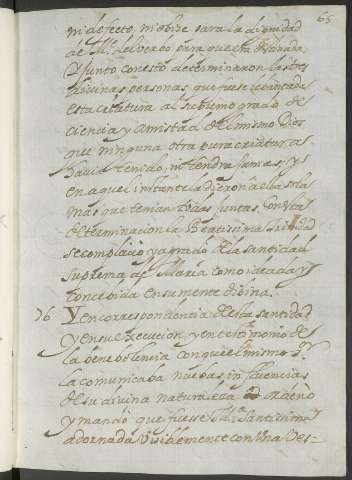 65
ni defecto, ni obsesara la dignidad
de M.e deliberado para que esta
Y junto con esto determinaron las tres
divinas personas que fuese lebantada
esta criatura al supremo grado de
ciencia y amistad del mismo Dios
que ninguna otra pura criatura
havia tenido, ni tendra jamas; y
en aquel instante la dieron a ella sola
mas que tenian todas juntas. Con esta
determinacion la Beatissima Trinidad
se complacio y agrado de la santidad
suprema de Maria como ideada y
concebida en su mente divina.
76 Y en correspondencia desta santidad
y en su execucion, y en testimonio de
la benebolencia con que el mismo S.r
la comunicaba nuebas influencias
de su divina naturaleça ordenó
y mandó que fuese M.a Santissima
adornada visiblemente con una Ves-